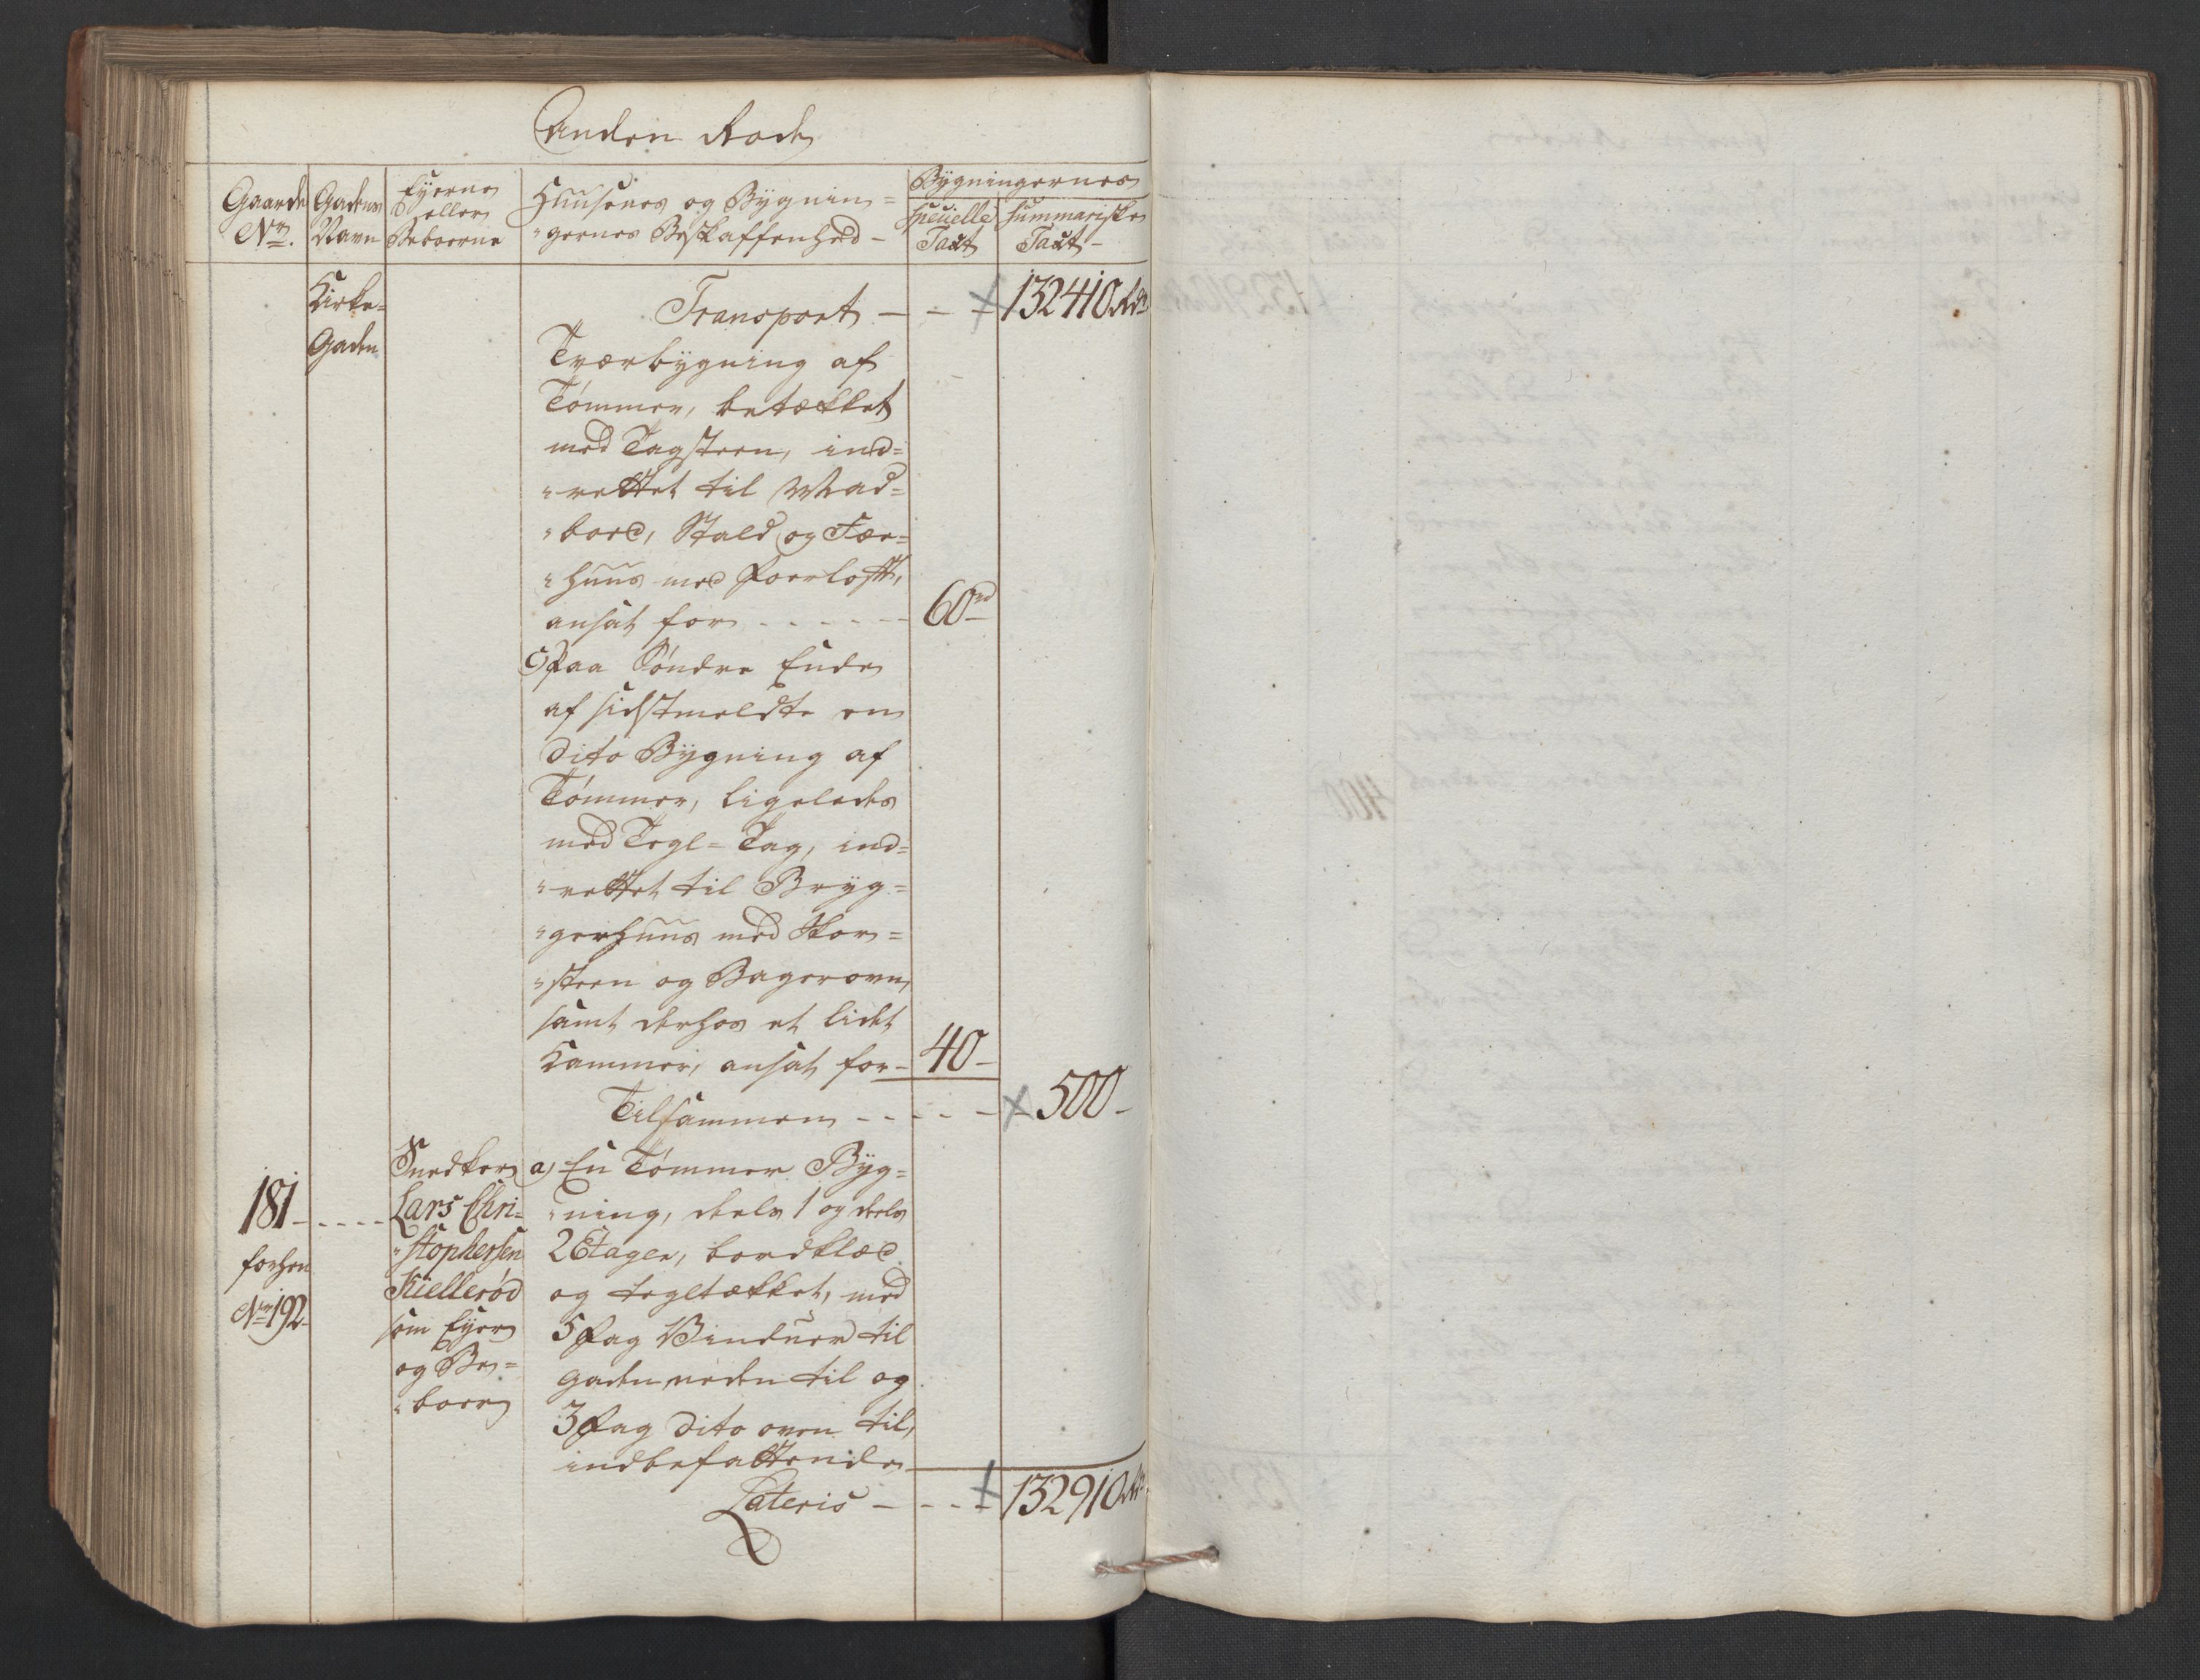 Anden Rode
Gaardens No.
Gadens Navn
Eyerne eller Beboerne
Huusenes og Bygnin=
"gernes Beskaffenhed -
Bygningernes
Speuielle Taxt
Summariske Taxt -
Kirke=
Gaden
Transport - - - 132410 Rdr
Tværbygning af
Tømmer, betækket
med Tagsteen, ind=
"rettet til Wed=
"boed, Stald og Fæe=
"huus med Foerloft,
ansat for - - - - - - 60 rd
c) Paa Søndre Ende
af sidstmeldte en
dito Bygning af
Tømmer, ligeledes
med Tegl=Tag, ind=
"rettet til Bryg=
"gerhuus med Skor=
"steen og Bagerovn,
samt derhos et lidet
Kammer, ansat for - 40 -
Tilsammen - - - - - 500 -
181 - - - - -
forhen
No 192.
Snedker
Lars Chri=
"stophersen
Kiellerød
som Eyer
og Be=
"boer
a) En Tømmer Byg=
"ning, deels 1 og deels
2 Etager, bordklæd
og tegltækket, med
5 Fag Vinduer til
Gaden neden til og
3 Fag dito oven til,
indbefattende
Lateris - - - - 132910 Rdr